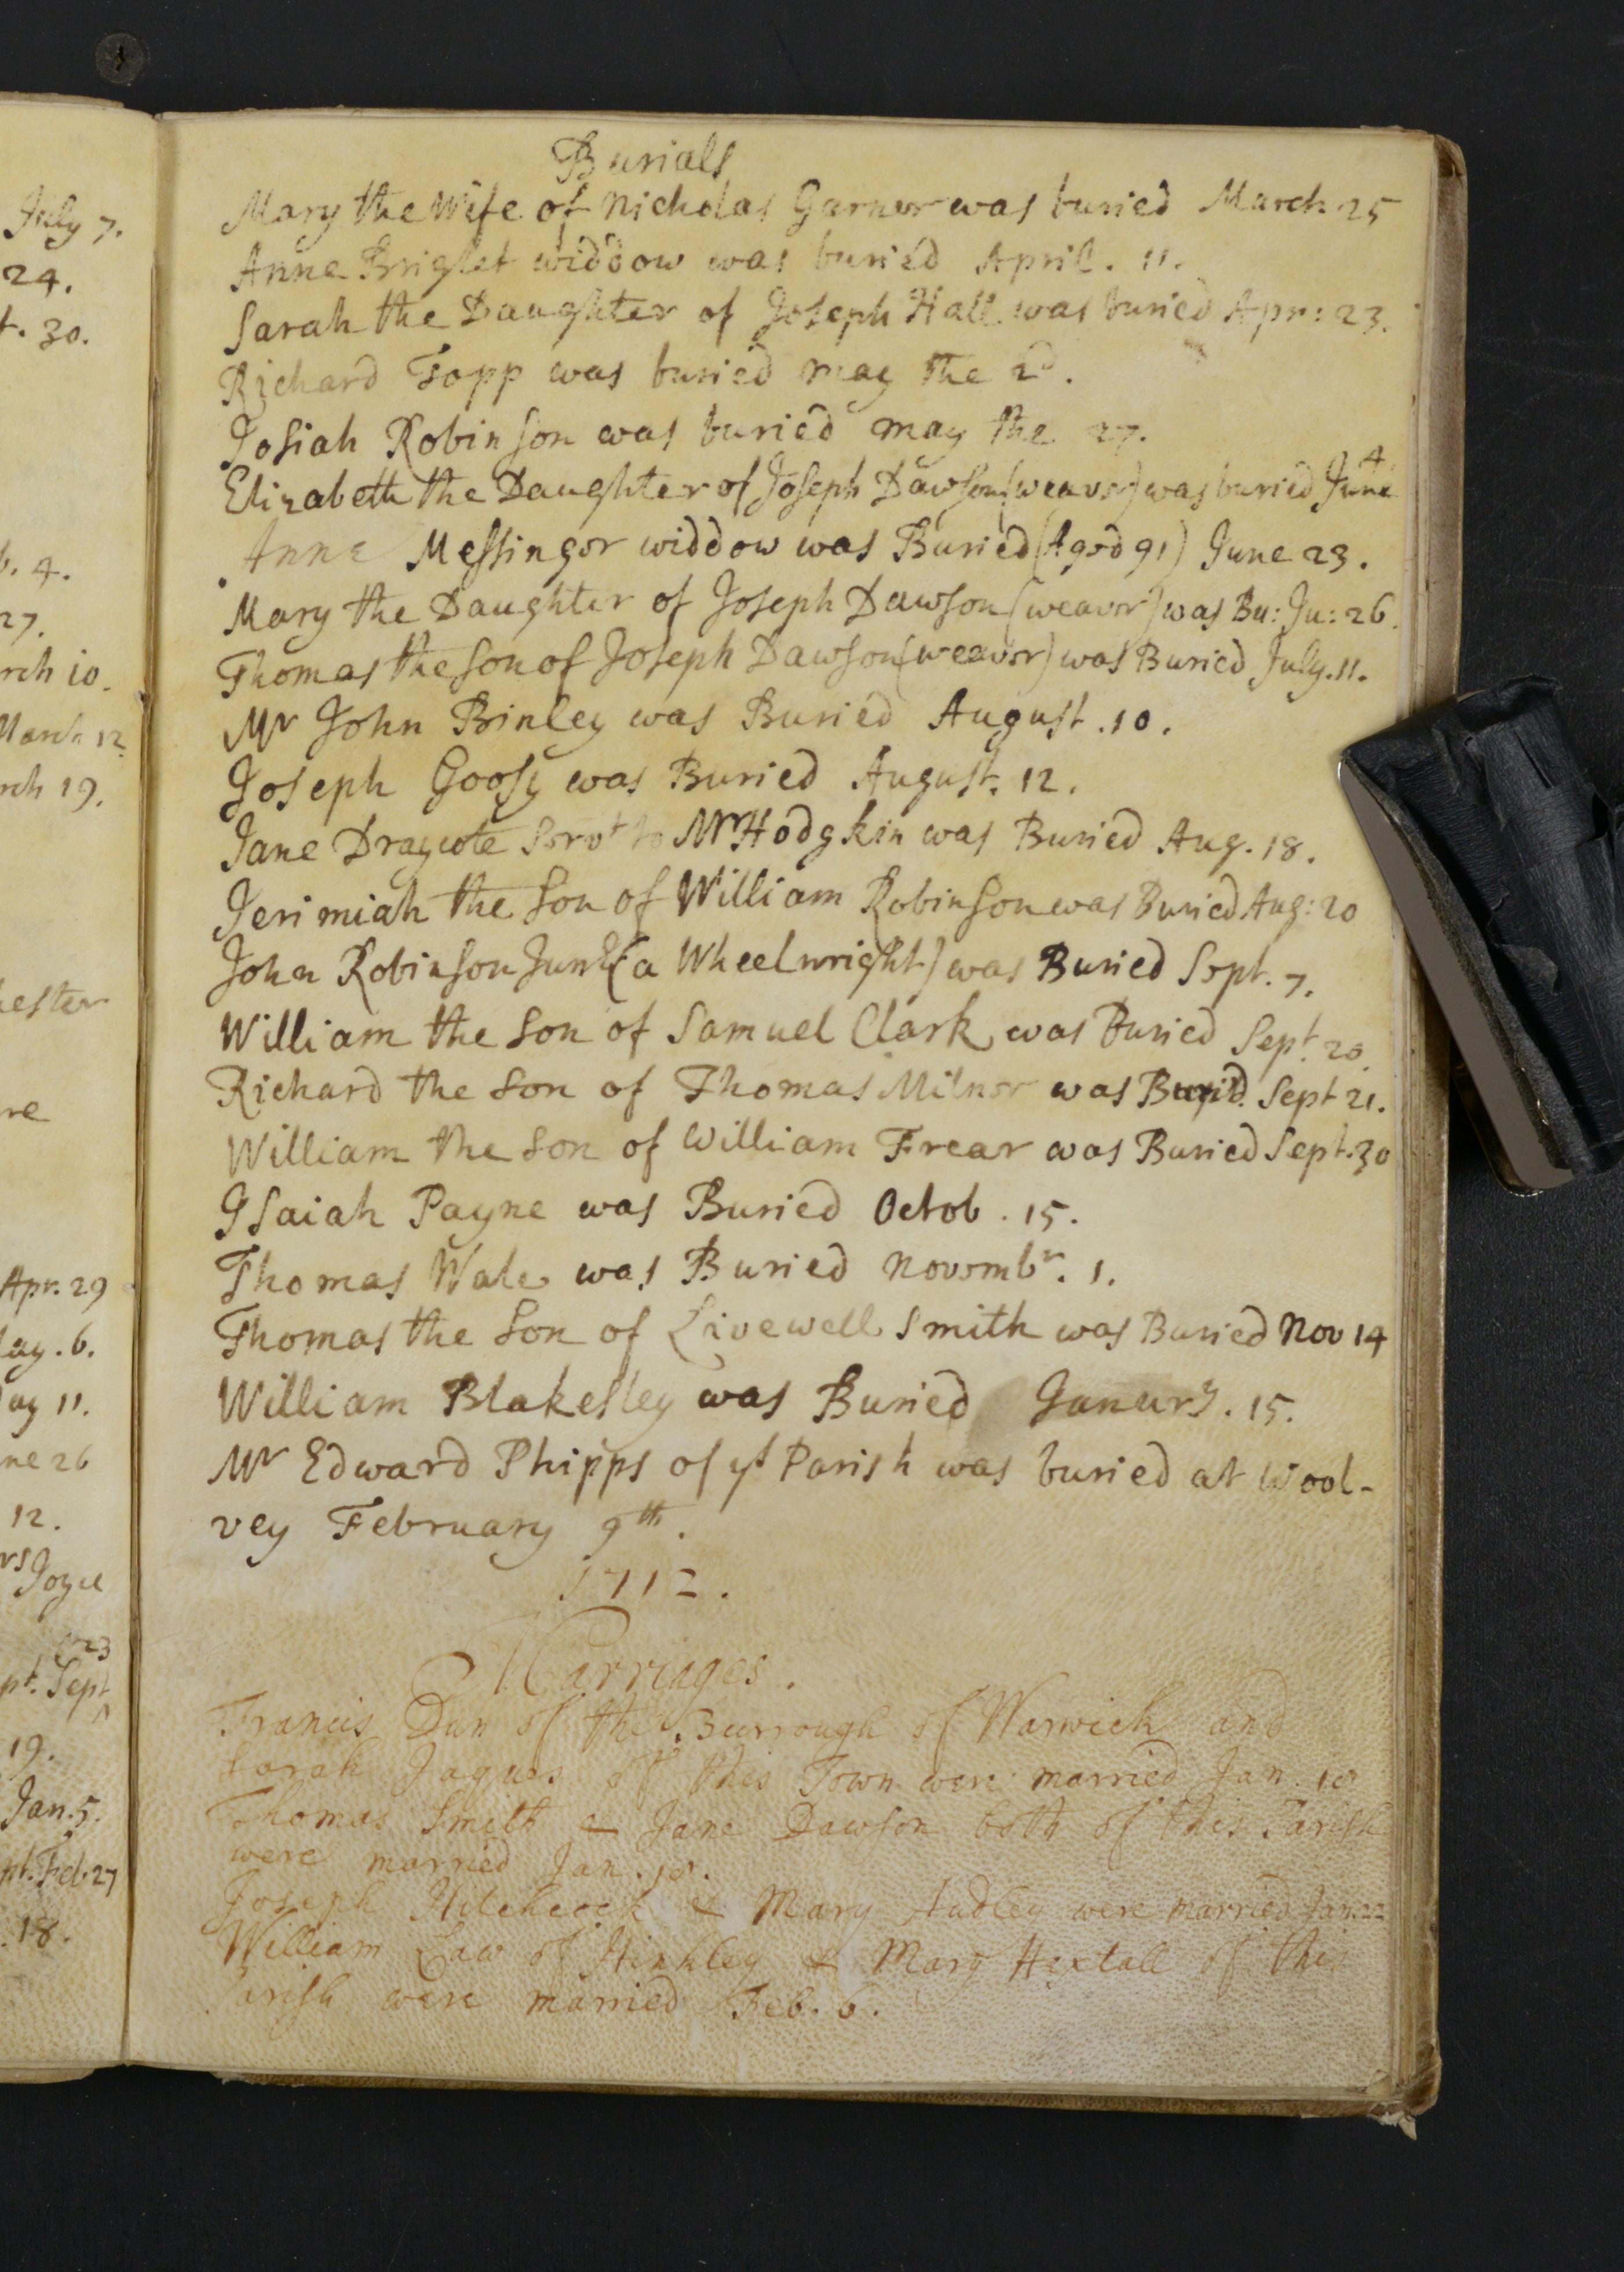 July 7.
24.
t. 30.
b. 4.
27.
rch 10.
March 12
rch 19.
hester
re
Apr. 29
ay. 6.
ay 11.
ne 26
12.
rs Joyce
23
pt. Sept
19.
Jan. 5.
pt. Feb 27
18.
Burials
Mary the Wife of Nicholas Garner was buried March 25
Anne Briglet widdow was buried April. 11.
Sarah the Daughter of Joseph Hall was buried Apr: 23.
Richard Topp was buried may the 2d.
Josiah Robinson was buried may the 27.
Elizabeth the Daughter of Joseph Dawson (weaver) was buried June 4
Anne Messinger widdow was Buried (Aged 91) June 23.
Mary the Daughter of Joseph Dawson (weaver) was Bu: Ju: 26.
Thomas the son of Joseph Dawson (weaver) was Buried July. 11.
Mr John Binley was Buried August. 10.
Joseph Goosy was Buried August. 12.
Jane Draycote Servt to Mr Hodgkin was Buried Aug. 18.
Jerimiah the Son of William Robinson was Buried Aug: 20
John Robinson Junr (a Wheelwright) was Buried Sept. 7.
William the Son of Samuel Clark was Buried Sept. 20.
Richard the Son of Thomas Milner was Buried Sept 21.
William the Son of William Frear was Buried Sept. 30
Isaiah Payne was Buried Octob. 15.
Thomas Wale was Buried Novembr. 1.
Thomas the Son of Livewell Smith was Buried Nov 14
William Blakesley was Buried Janury. 15.
Mr Edward Phipps of ys Parish was buried at Wool-
vey February 9th.
1712.
Marriages.
Francis Dun of the Burrough of Warwick and
Sarah Jaques of this Town were married Jan.
Thomas Smith & Jane Dawson both of this Parish
were married Jan.
Joseph Hitchcock & Mary were married Jan. 22
William Law of Hinkley & Mary Hextall of this
Parish were married Feb. 6.